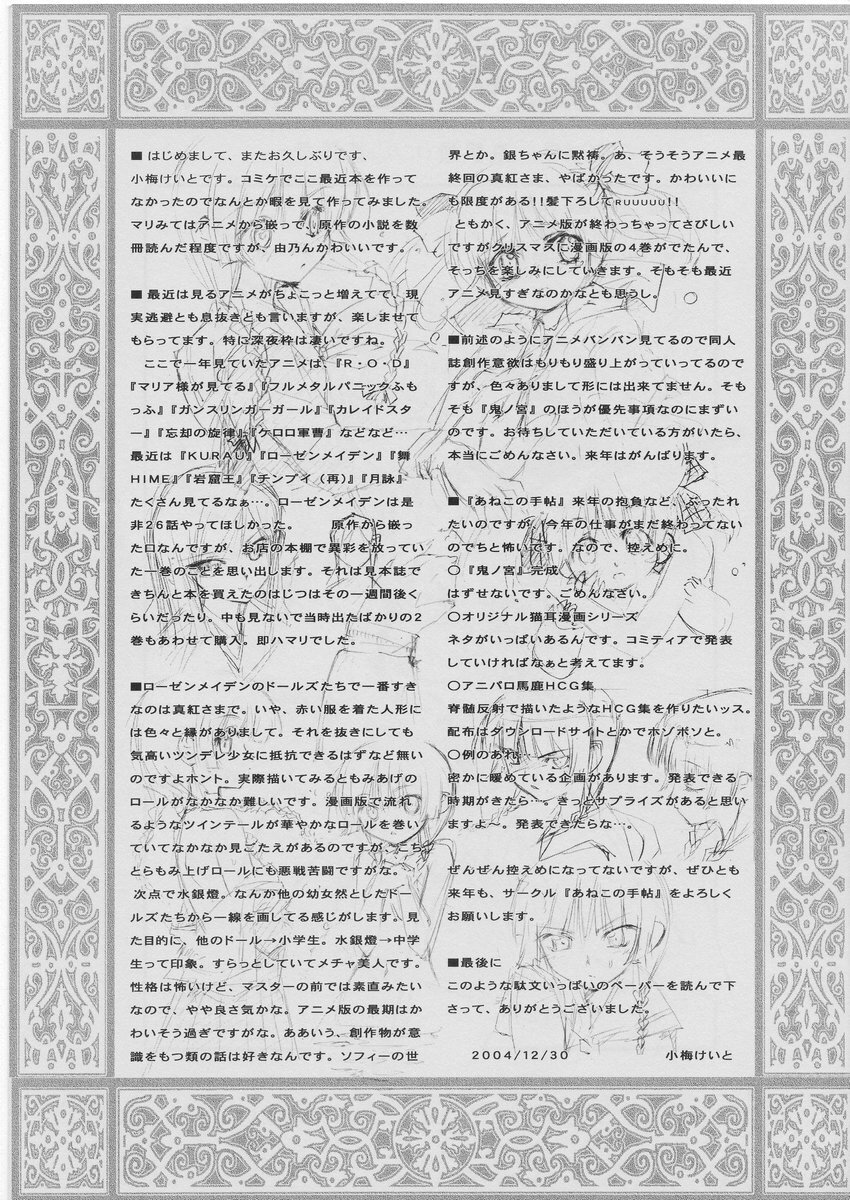 ■はじめまして、またお久しぶりです、
小梅けいとです。コミケでここ最近本を作って
なかったのでなんとか暇を見て作ってみました。
マリみてはアニメから嵌って、原作の小説を数
冊読んだ程度ですが、由乃んかわいいです。
■最近は見るアニメがちょこっと増えてて、現
実逃避とも息抜きとも言いますが、楽しませて
もらってます。特に深夜枠は凄いですね。
ここで一年見ていたアニメは、『R・O・D』
『マリア様が見てる』『フルメタルパニックふも
っふ』『ガンスリンガーガール』『カレイドスタ
ー』『忘却の旋律』『ケロロ軍曹』などなど…
最近は『KURAU』『ローゼンメイデン』『舞
HIME』『岩窟王』『チンプイ（再）』『月詠』
たくさん見てるなぁ…。ローゼンメイデンは是
非26話やってほしかった。　　原作から嵌っ
た口なんですが、お店の本棚で異彩を放ってい
た一巻のことを思い出します。それは見本誌で
きちんと本を買えたのはじつはその一週間後く
らいだったり。中も見ないで当時出たばかりの2
巻もあわせて購入。即ハマリでした。
■ローゼンメイデンのドールズたちで一番すき
なのは真紅さまで。いや、赤い服を着た人形に
は色々と縁がありまして。それを抜きにしても
気高いツンデレ少女に抵抗できるはずなど無い
のですよホント。実際描いてみるともみあげの
ロールがなかなか難しいです。漫画版で流れ
るようなツインテールが華やかなロールを巻い
ていてなかなか見ごたえがあるのですが、こち
とらもみ上げロールにも悪戦苦闘ですがな。
次点で水銀燈。なんか他の幼女然としたドー
ルズたちから一線を画してる感じがします。見
た目的に、他のドール→小学生。水銀燈→中学
生って印象。すらっとしていてメチャ美人です。
性格は怖いけど、マスターの前では素直みたい
なので、やや良さ気かな。アニメ版の最期はか
わいそう過ぎですがな。ああいう、創作物が意
識をもつ類の話は好きなんです。ソフィーの世
界とか。銀ちゃんに黙祷。あ、そうそうアニメ最
終回の真紅さま、やばかったです。かわいいに
も限度がある!!髪下ろしてRUUUUU!!
ともかく、アニメ版が終わっちゃってさびしい
ですがクリスマスに漫画版の4巻がでたんで、
そっちを楽しみにしていきます。そもそも最近
アニメ見すぎなのかなとも思うし。
■前述のようにアニメバンバン見てるので同人
誌創作意欲はもりもり盛り上がっていってるので
すが、色々ありまして形には出来てません。そも
そも『鬼ノ宮』のほうが優先事項なのにまずい
のです。お待ちしていただいている方がいたら、
本当にごめんなさい。来年はがんばります。
■『あねこの手帖』来年の抱負など、ぶったれ
たいのですが、今年の仕事がまだ終わってない
のでちと怖いです。なので、控えめに。
○『鬼ノ宮』完成
はずせないです。ごめんなさい。
○オリジナル猫耳漫画シリーズ
ネタがいっぱいあるんです。コミティアで発表
していければなぁと考えてます。
○アニパロ馬鹿HCG集
脊髄反射で描いたようなHCG集を作りたいッス。
配布はダウンロードサイトとかでホソボソと。
○例のあれ…
密かに暖めている企画があります。発表できる
時期がきたら…。きっとサプライズがあると思い
ますよ～。発表できたらな…。
ぜんぜん控えめになってないですが、ぜひとも
来年も、サークル『あねこの手帖』をよろしく
お願いします。
■最後に
このような駄文いっぱいのペーパーを読んで下
さって、ありがとうございました。
2004/12/30　小梅けいと